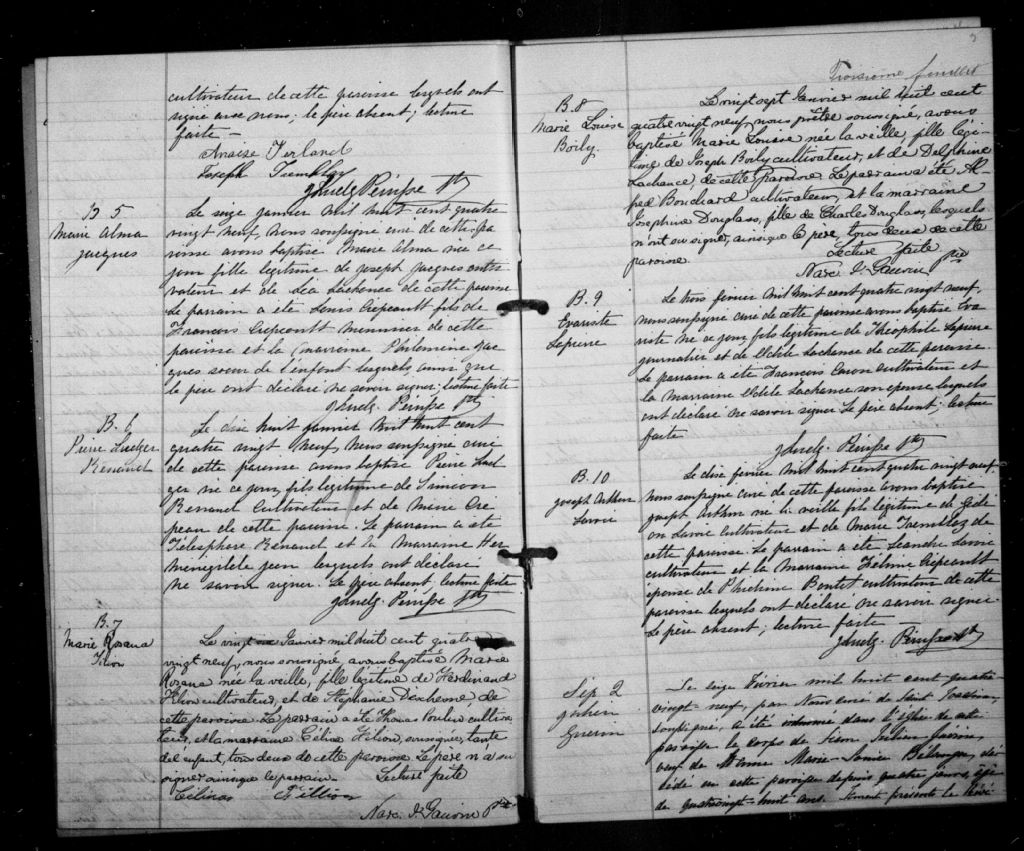 cultivateur de cette paroisse lesquels ont
signé avec nous; le père absent; lecture
faite
Joseph Tremblay
Ptr
B 5
Marie Alma
Jacques
Le seize janvier Mil huit cent quatre
vingt neuf, Nous soussigné curé de cette pa
roisse avons baptisé Marie Alma née ce
jour fille légitime de Joseph Jacques culti
vateur et de Léa Lachance de cette paroisse
Le parrain a été Louis Crépeault fils de
Francois Crépeault menuisier de cette
paroisse et la marraine Philomène Jac
ques soeur de l'enfant lesquels, ainsi que
le père ont déclaré ne savoir signer; lecture faite
Ptr
B. 6
Pierre Ludger
Renaud
Le dix huit janvier Mil huit cent
quatre vingt neuf, Nous soussigné curé
de cette paroisse avons baptisé Pierre Lud
ger né ce jour, fils légitime de Siméon
Renaud cultivateur et de Marie Cre
peau de cette paroisse. Le parrain a été
Télésphore Renaud et la Marraine Her
lesquels ont déclaré
ne savoir signer. Le père absent, lecture faite
Ptr
B. 7
Marie Rosana
Filion
Le vingt Janvier mil huit cent quatre
vingt neuf, nous soussigné, avons baptisé Marie
Rosana née la veille, fille légitime de Ferdinand
Filion cultivateur, et de Stéphanie Duchesne, de
cette paroisse. Le parrain a été Thomas Pouliot cultiva
teur, et la marraine Célina Filion, tante
de l enfant, tous deux de cette paroisse. Le père n'a su
signer ainsi que le parrain. Lecture faite
Célinas Fillion
Ptre
Troisième feuillet
B. 8
Marie Louise
Boily
Le vingt sept Janvier mil huit cent
quatre vingt neuf, nous prêtre soussigné, avons
baptisé Marie Louise née la veille, fille légi-
time de Joseph Boily cultivateur, et de Delphine
Lachance, de cette paroisse. Le parrain a été Al-
fred Bouchard cultivateur, et la marraine
Josephine Douglass, fille de Charles Douglass, lesquels
n'ont su signer, ainsi que le père, tous deux de cette
paroisse. Lecture faite
Ptre
B. 9
Evariste
Lapierre
Le trois février Mil huit cent quatre vingt neuf,
nous soussigné curé de cette paroisse avons baptisé Eva
riste né ce jour, fils légitime de Théophile Lapierre
journalier et de Odile Lachance de cette paroisse.
Le parrain a été Francois Caron cultivateur et
la Marraine Odile Lachance son épouse, lesquels
ont déclaré ne savoir signer. Le père absent; lecture
faite
Ptr
B. 10
Joseph Arthur
Savoie
Le dix février Mil huit cent quatre vingt neuf.
nous soussigné curé de cette paroisse avons baptisé
Joseph Arthur né la veille fils légitime de Gédé
on Savoie cultivateur et de Marie Tremblay de
cette paroisse. Le parrain a été Léandre Savoie
cultivateur et la Marraine Crépeault
épouse de Boutet cultivateur de cette
paroisse lesquels ont déclaré ne savoir signer.
Le père absent; lecture faite
Ptr
Sép. 2
Julien
Guérin
Le seize Février mil huit cent quatre
vingt-neuf, par Nous curé de Saint
soussigné, a été inhumé dans l'église de cette
paroisse le corps de Julien Guérin,
veuf de Marie Bélanger, dé
cédé en cette paroisse depuis quatre jours, âgé
de quatrevingt-huit ans. Etaient présents le